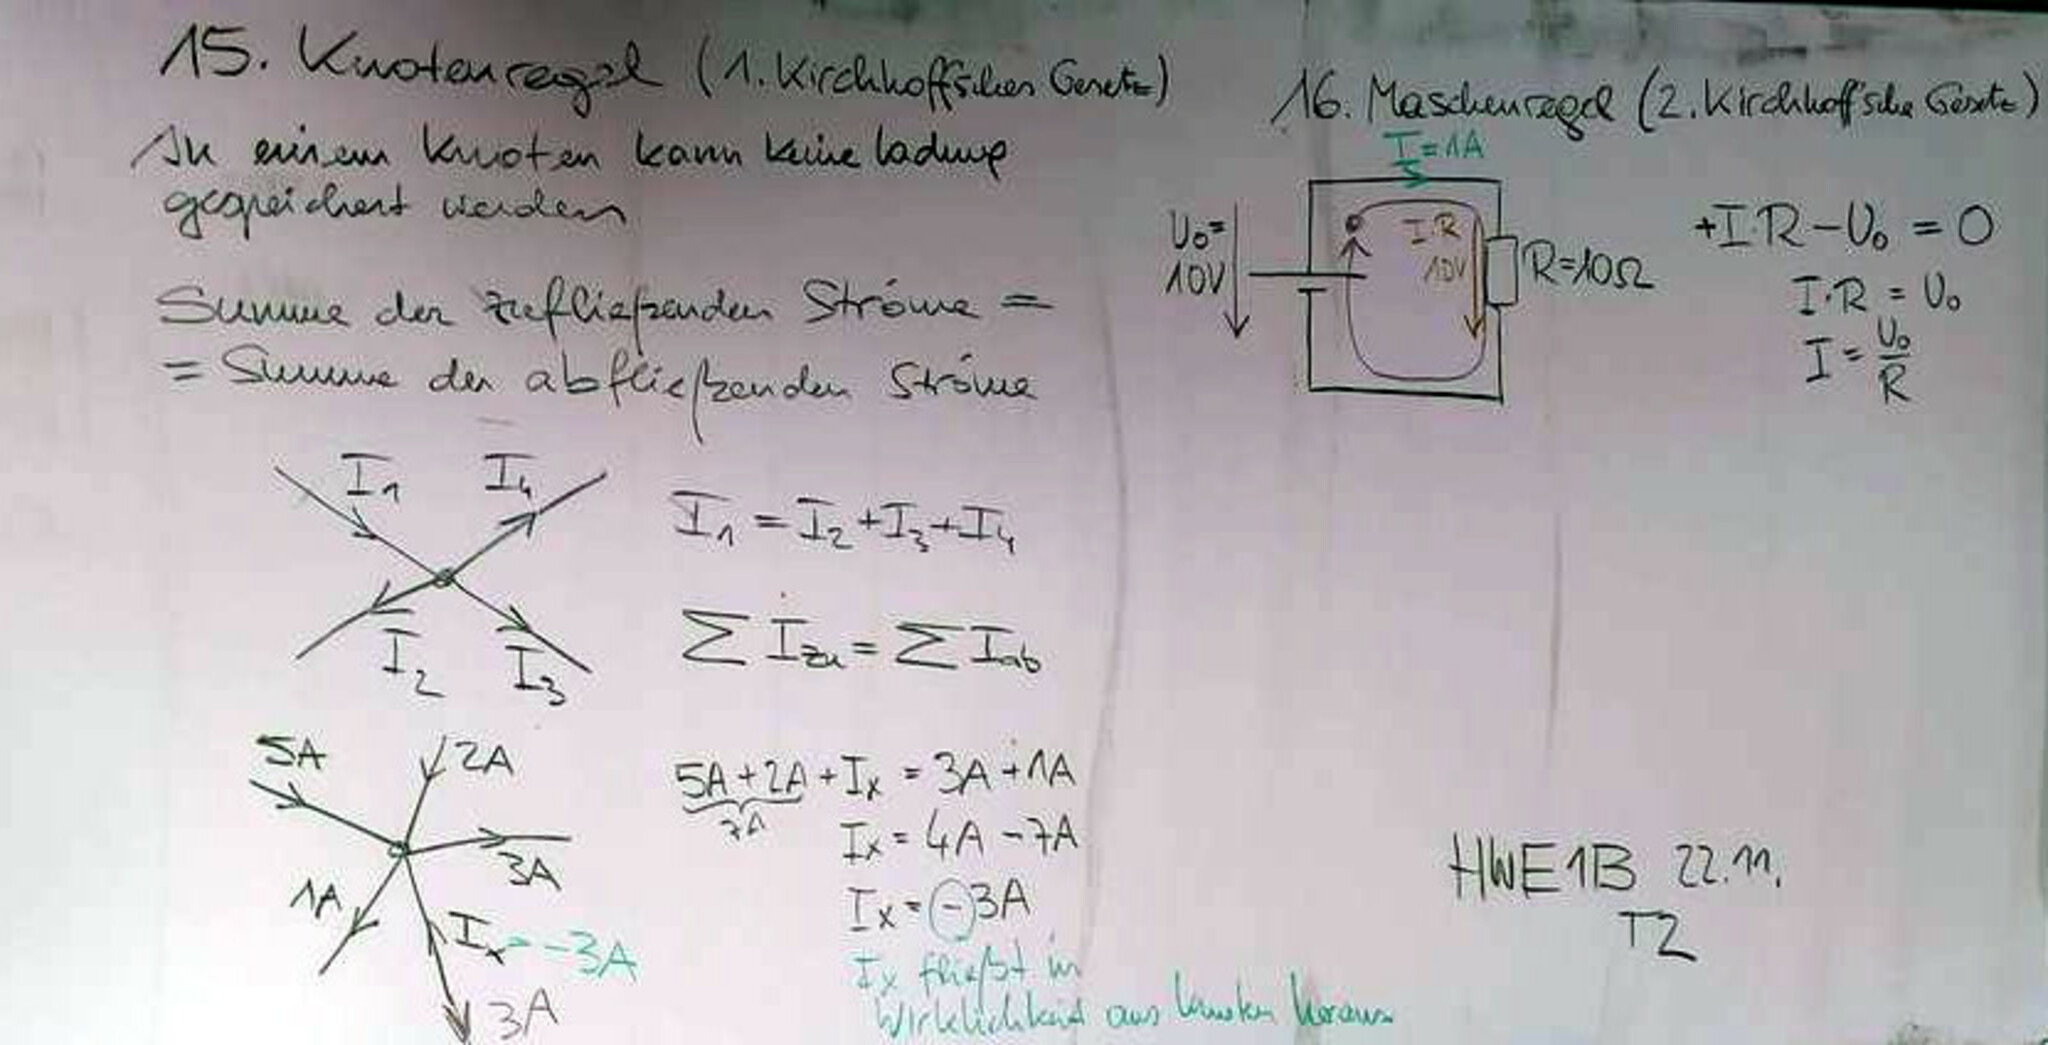 15. Knotenregel (1. Kirchhoff'sches Gesetz)
In einem Knoten kann keine Ladung
gespeichert werden
Summe der zufließenden Ströme =
= Summe der abfließenden Ströme
I₁ I₄
I₂ I₃
I₁ = I₂ + I₃ + I₄
∑ I_zu = ∑ I_ab
5A 2A
3A
1A
Iₓ = -3A
3A
5A + 2A + Iₓ = 3A + 1A
7A
Iₓ = 4A - 7A
Iₓ = -3A
Iₓ fließt in
Wirklichkeit aus Knoten heraus
16. Maschenregel (2. Kirchhoff'sche Gesetz)
I = 1A
U₀ =
10V
I·R
10V
R=10Ω
+I·R - U₀ = 0
I·R = U₀
I = U₀/R
HWE1B 22.11.
T2